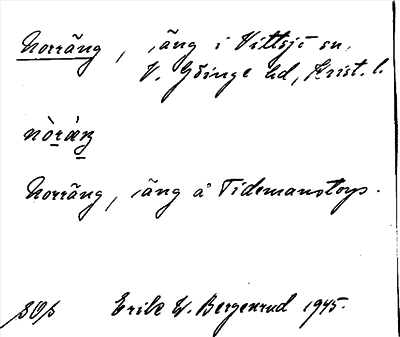 Norräng, äng i Vittsjö sn.
V. Göinge hd, Krist. l.
nòráŋ
Norräng, äng å Tidemanstorp.
Erik W. Bergenrud 1945.